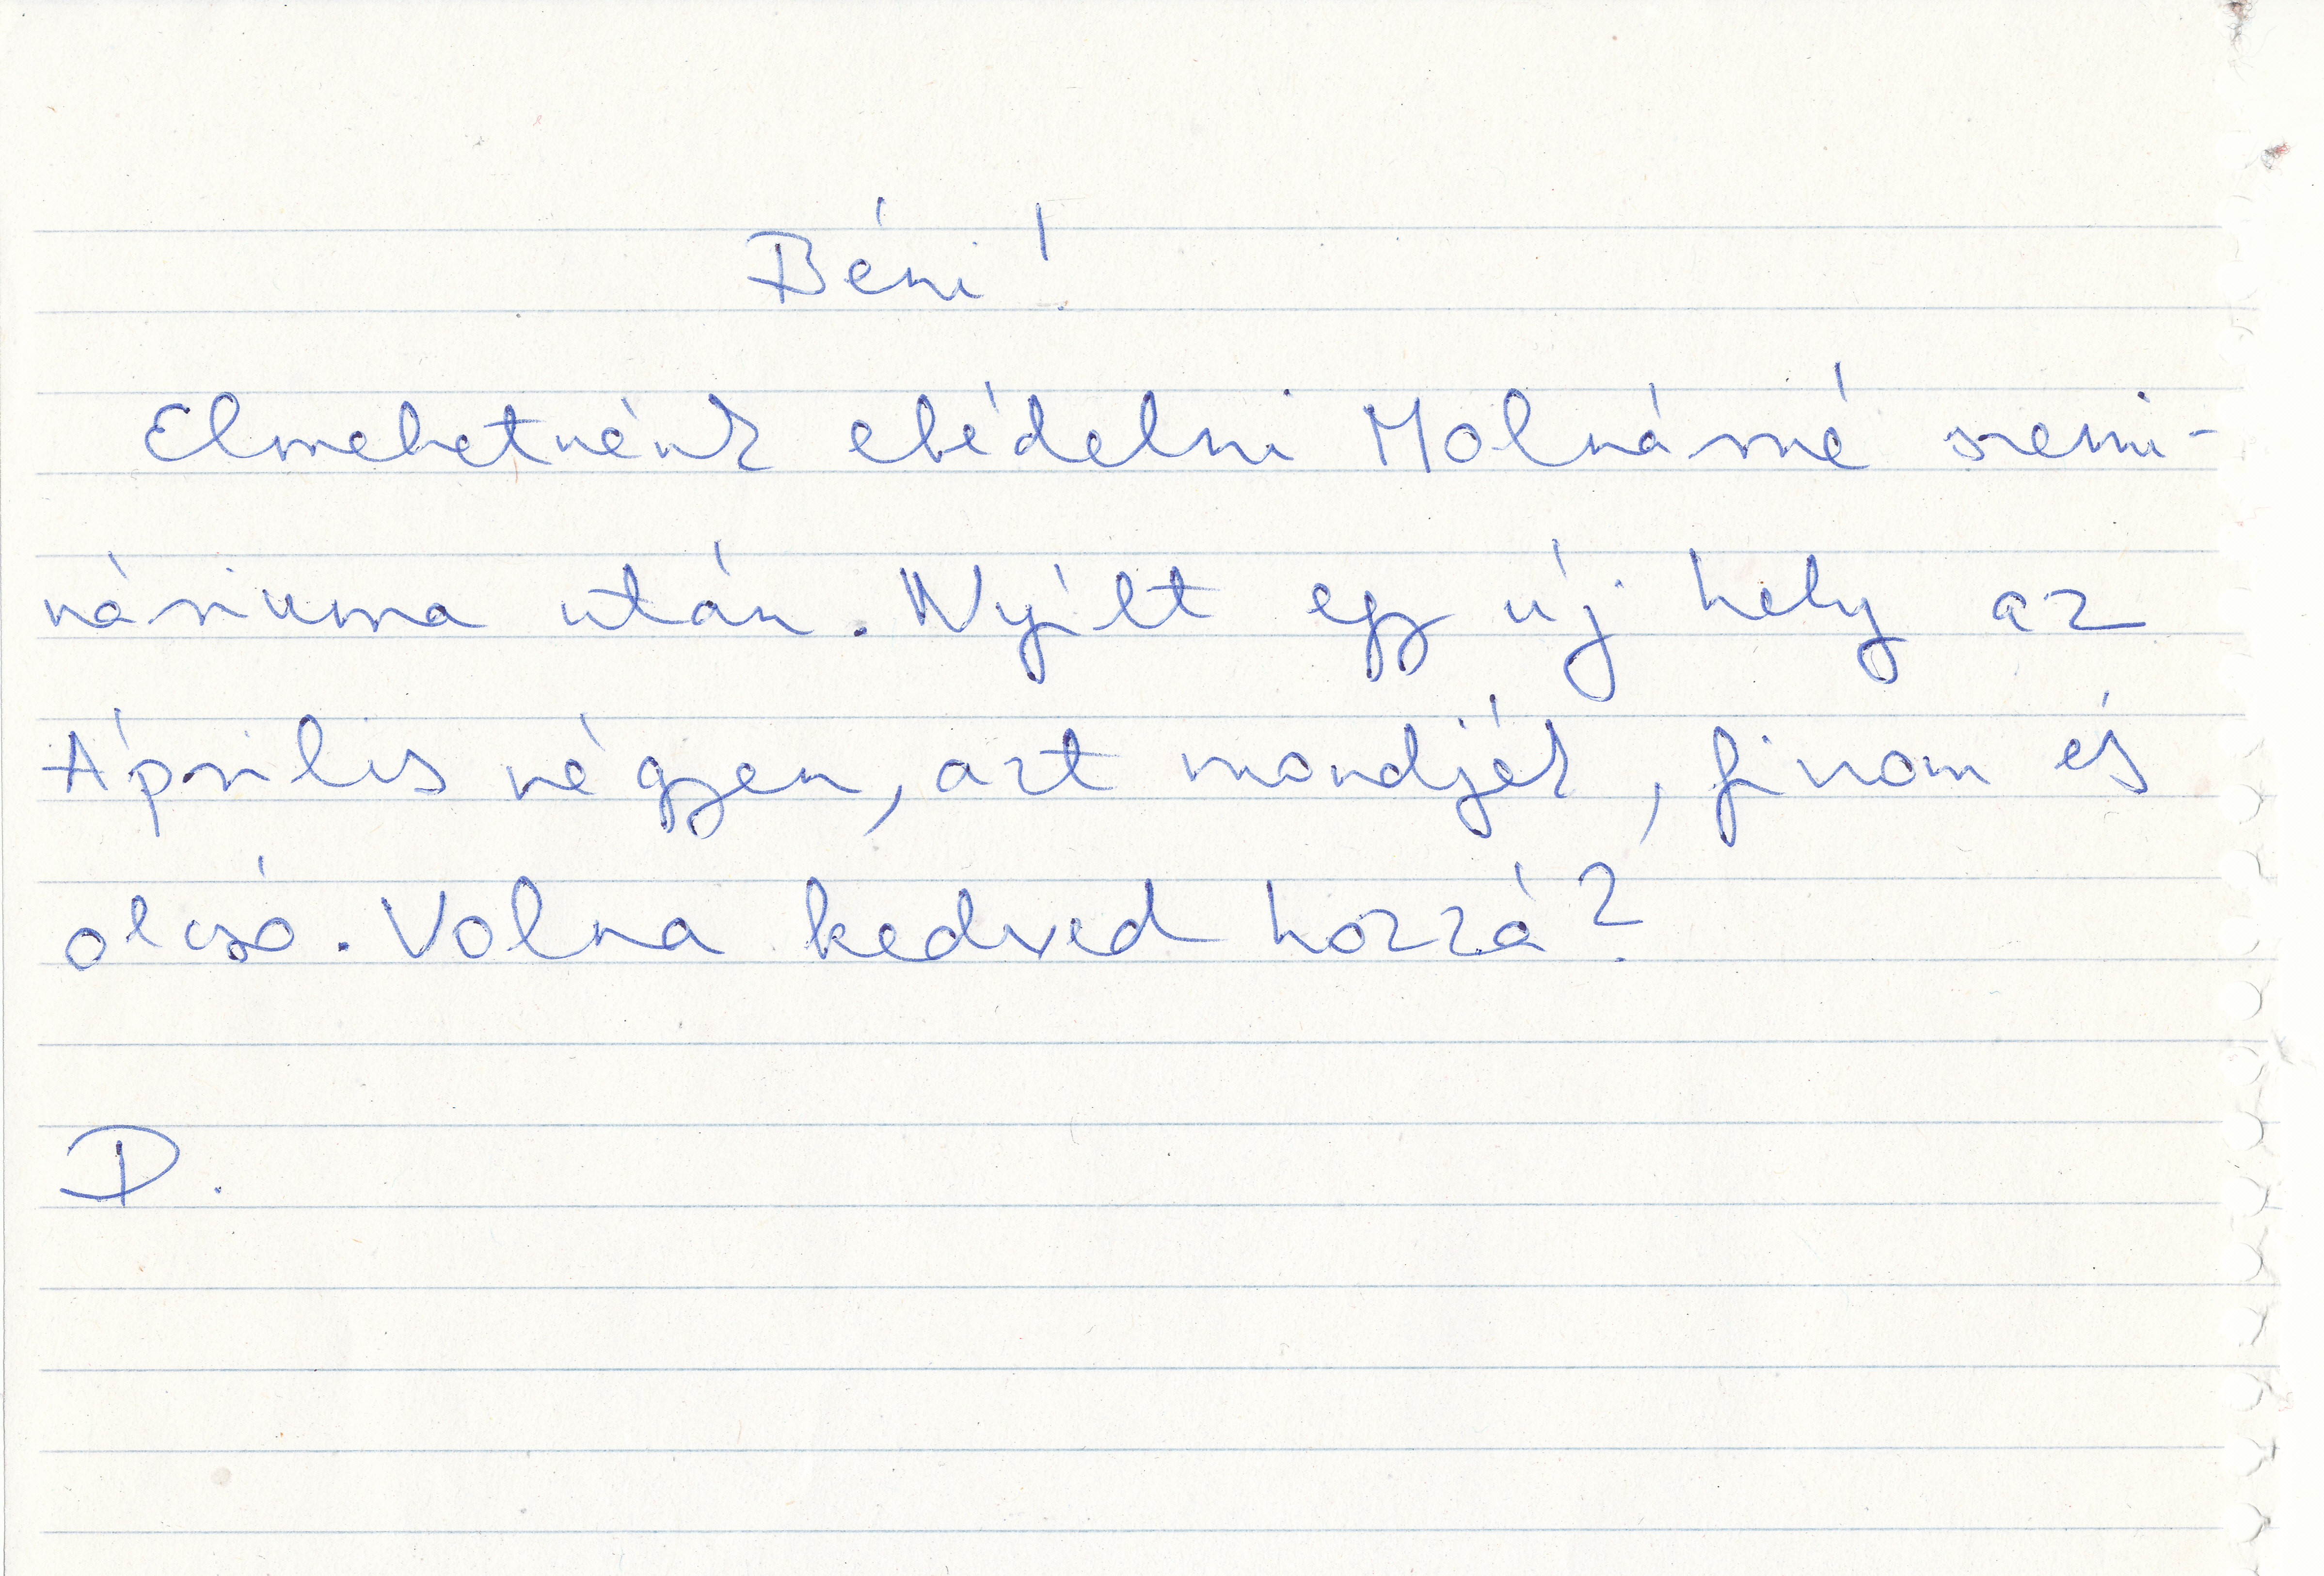 Béni!
Elmehetnénk ebédelni Molnárné szemi-
náriuma után. Nyílt egy új hely az
Április négyen, azt mondják, finom és
olcsó. Volna kedved hozzá?
D.